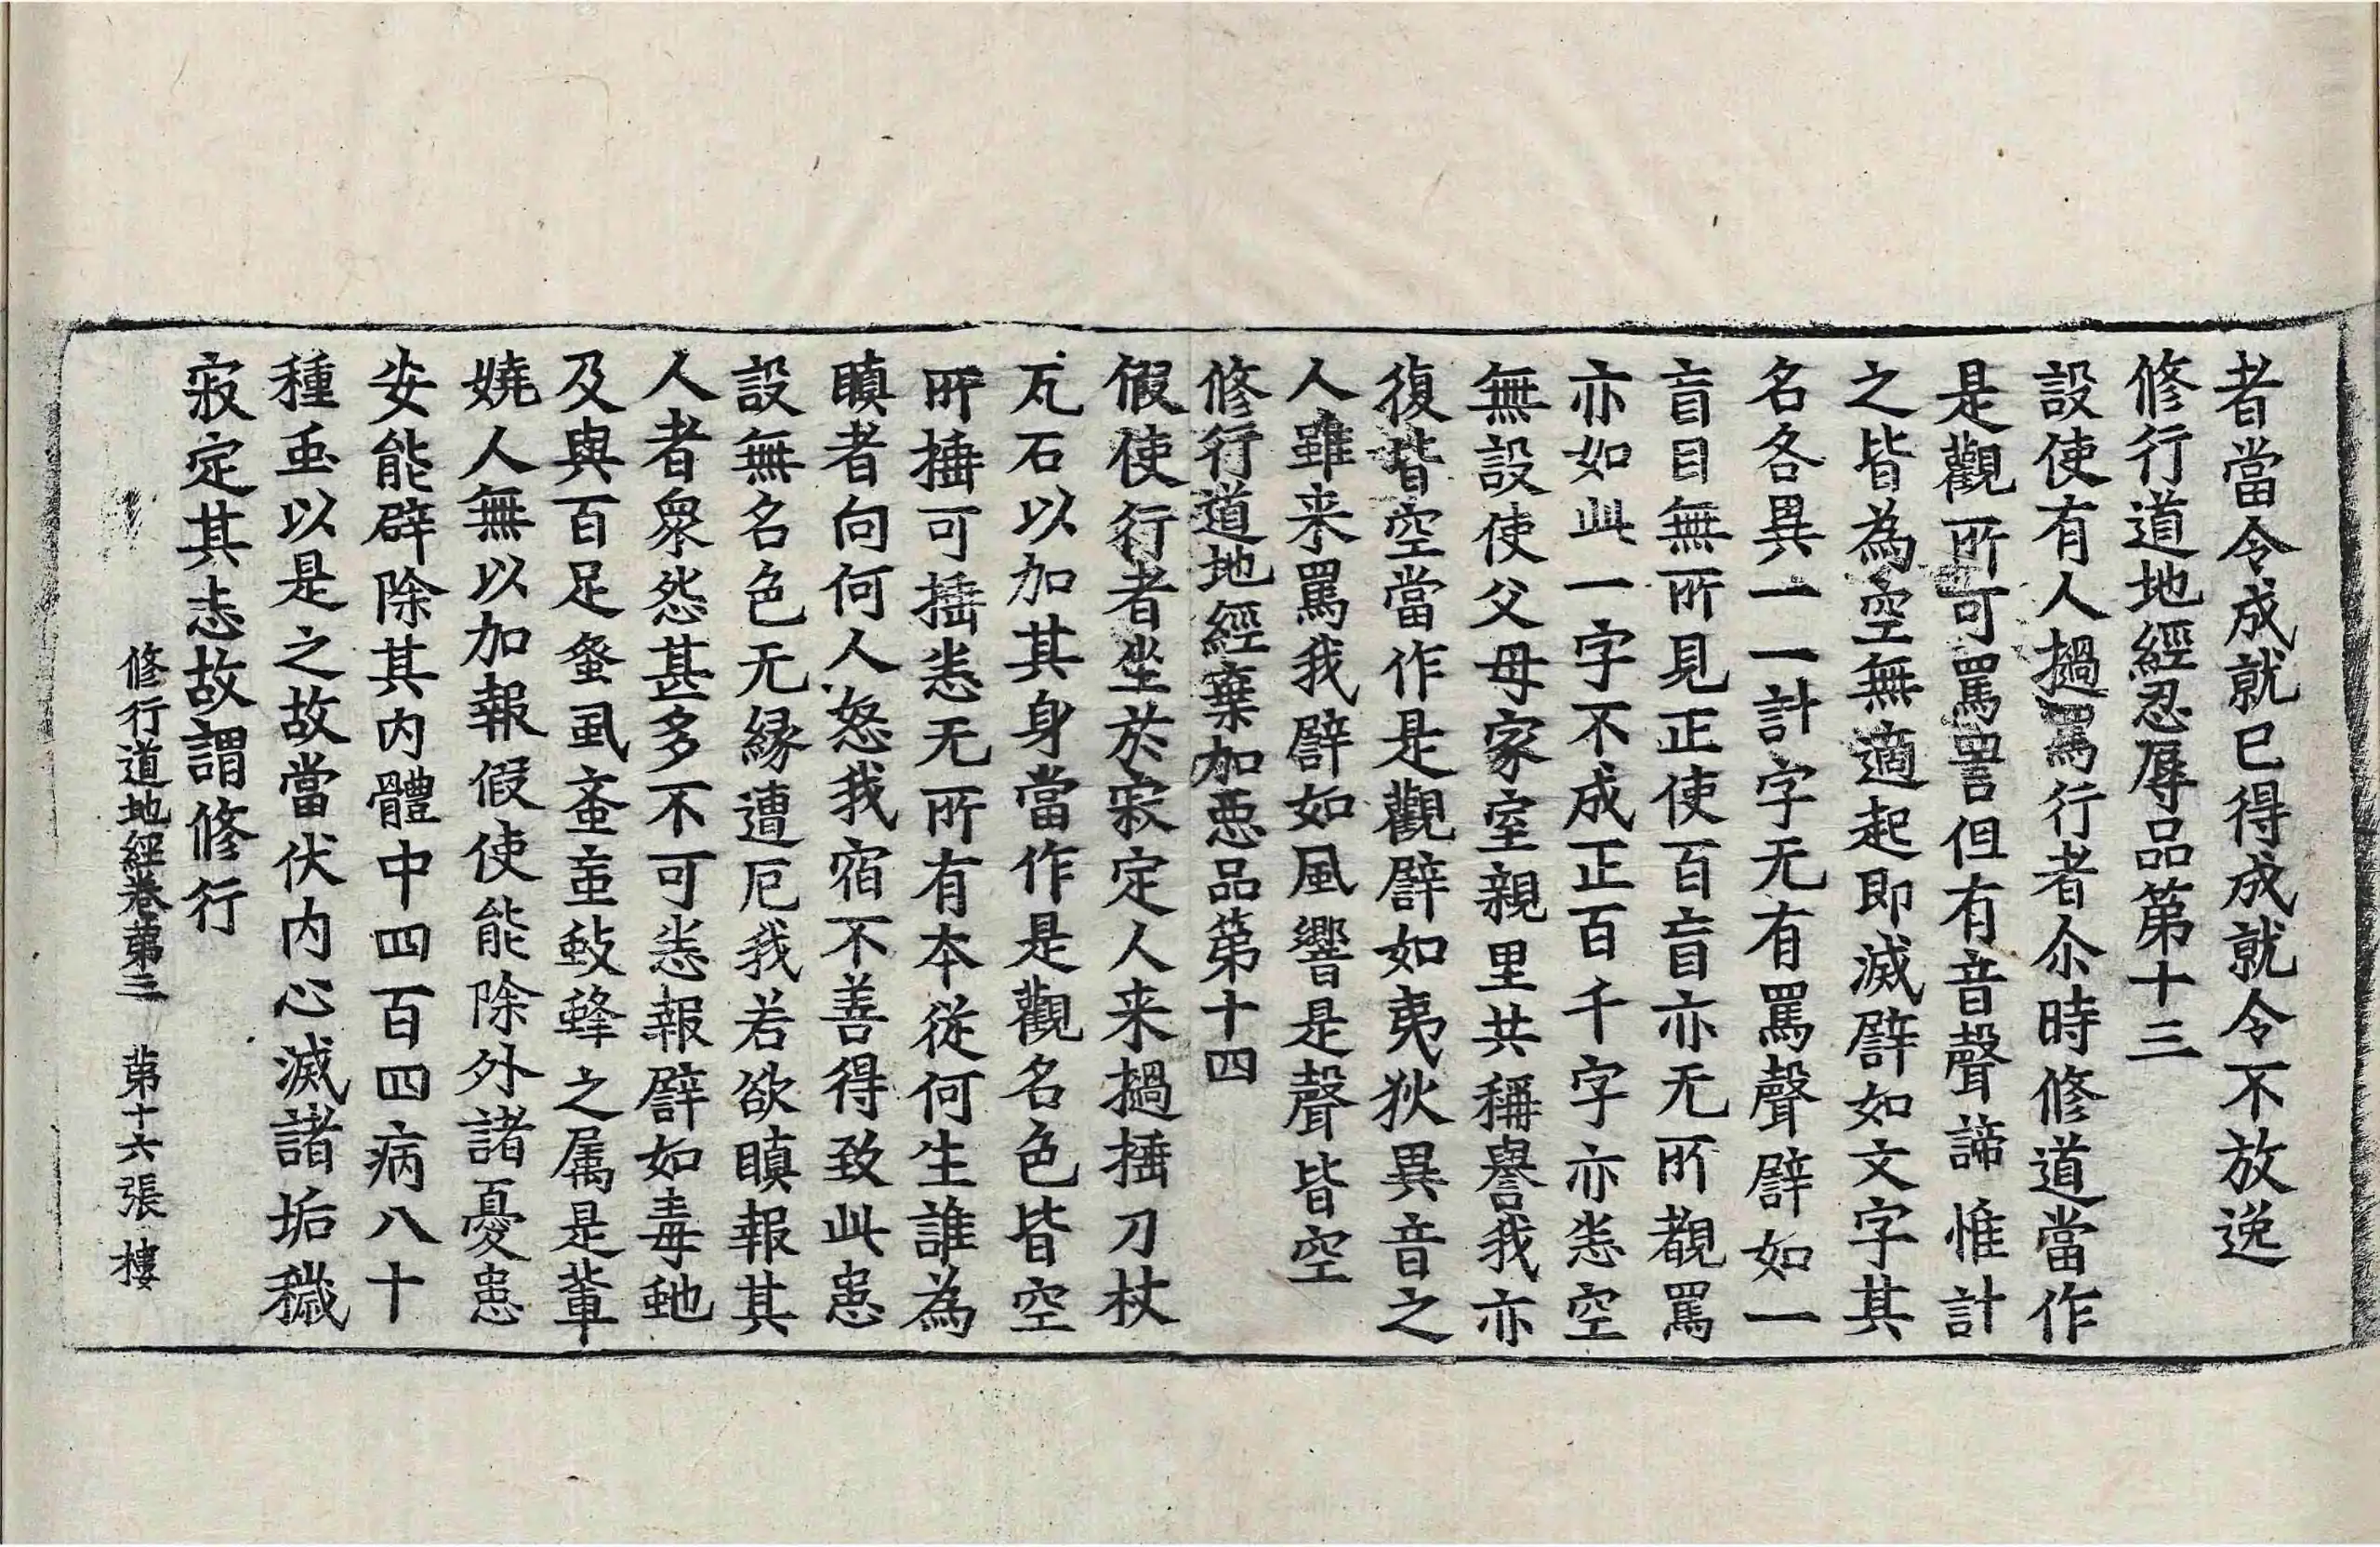 者當令成就已得成就令不放逸
修行道地經忍辱品第十三
設使有人撾罵行者尒時修道當作
是觀所可罵詈但有音聲諦惟計
之皆為空無適起即滅譬如文字其
名各異一一計字无有罵聲譬如一
盲目無所見正使百盲亦无所覩罵
亦如此一字不成正百千字亦恙空
無設使父母家室親里共稱譽我亦
復皆空當作是觀譬如夷狄異音之
人雖来罵我譬如風響是聲皆空
修行道地經棄加惡品第十四
假使行者坐於寂定人来撾捶刀杖
瓦石以加其身當作是觀名色皆空
所捶可捶恙无所有本從何生誰為
瞋者向何人怒我宿不善得致此患
設無名色无緣遭厄我若欲瞋報其
人者衆怨甚多不可恙報譬如毒虵
及與百足蚤虱蚉䖟蚑蜂之属是輩
嬈人無以加報假使能除外諸憂患
安能辟除其内體中四百四病八十
種䖝以是之故當伏内心滅諸垢穢
寂定其志故謂修行
修行道地經卷第三 第十六張 樓